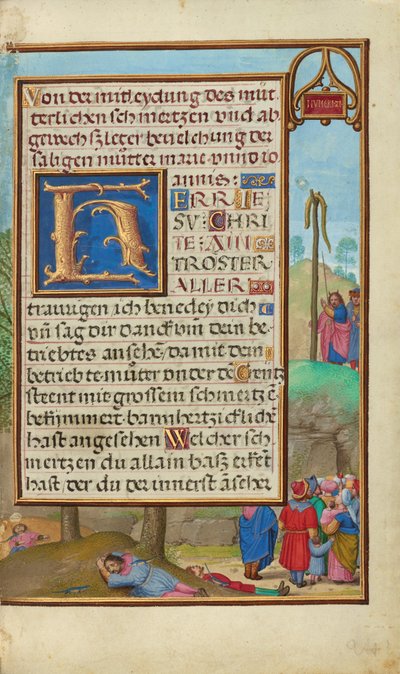 NVMERI·21
Von der mitleydung des müt
terlichen schmertzen vnd ab
gewechszleger beuelchung der
säligen mutter marie vnnd io
annis:
HERR IE
SV CHRI
TE: AIN
TROSTER
ALLER
traurigen ich benedey dich
vn̄ sag dir danck vm dein be
triebtes ansehē/ da mit dein
betriebte mutter vnder de Creutz
steent mit grossem schmertzē
bekimmert barmhertzicklich
hast angesehen Welcher sch
mertzen du allain basz erkēt
hast der du der innerst